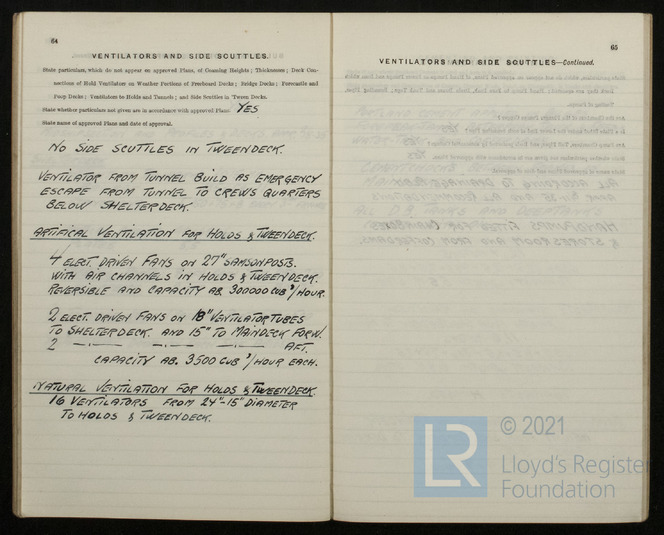 64
VENTILATORS AND SIDE SCUTTLES.
State particulars, which do not appear on approved Plans, of Coaming Heights; Thicknesses; Deck Con-
nections of Hold Ventilators on Weather Portions of Freeboard Decks; Bridge Decks; Forecastle and
Poop Decks; Ventilators to Holds and Tunnels; and Side Scuttles in 'Tween Decks.
State whether particulars not given are in accordance with approved Plans. YES
State name of approved Plans and date of approval.
NO SIDE SCUTTLES IN TWEENDECK.
VENTILATOR FROM TUNNEL BUILD AS EMERGENCY
ESCAPE FROM TUNNEL TO CREWS QUARTERS
BELOW SHELTERDECK.
ARTIFICAL VENTILATION FOR HOLDS & TWEENDECK.
4 ELECT. DRIVEN FANS ON 27" SAMSONPOSTS.
WITH AIR CHANNELS IN HOLDS & TWEENDECK.
REVERSIBLE AND CAPACITY AB. 300000 CUB ³/HOUR.
2 ELECT. DRIVEN FANS ON 18" VENTILATOR TUBES
TO SHELTERDECK. AND 15" TO MAINDECK FORW.
2 —·— —·— —·— AFT.
CAPACITY AB. 3500 CUB ³/HOUR EACH.
NATURAL VENTILATION FOR HOLDS & TWEENDECK.
16 VENTILATORS FROM 24"-15" DIAMETER
TO HOLDS & TWEENDECK.
65
VENTILATORS AND SIDE SCUTTLES—Continued.
LR
© 2021
Lloyd's Register
Foundation